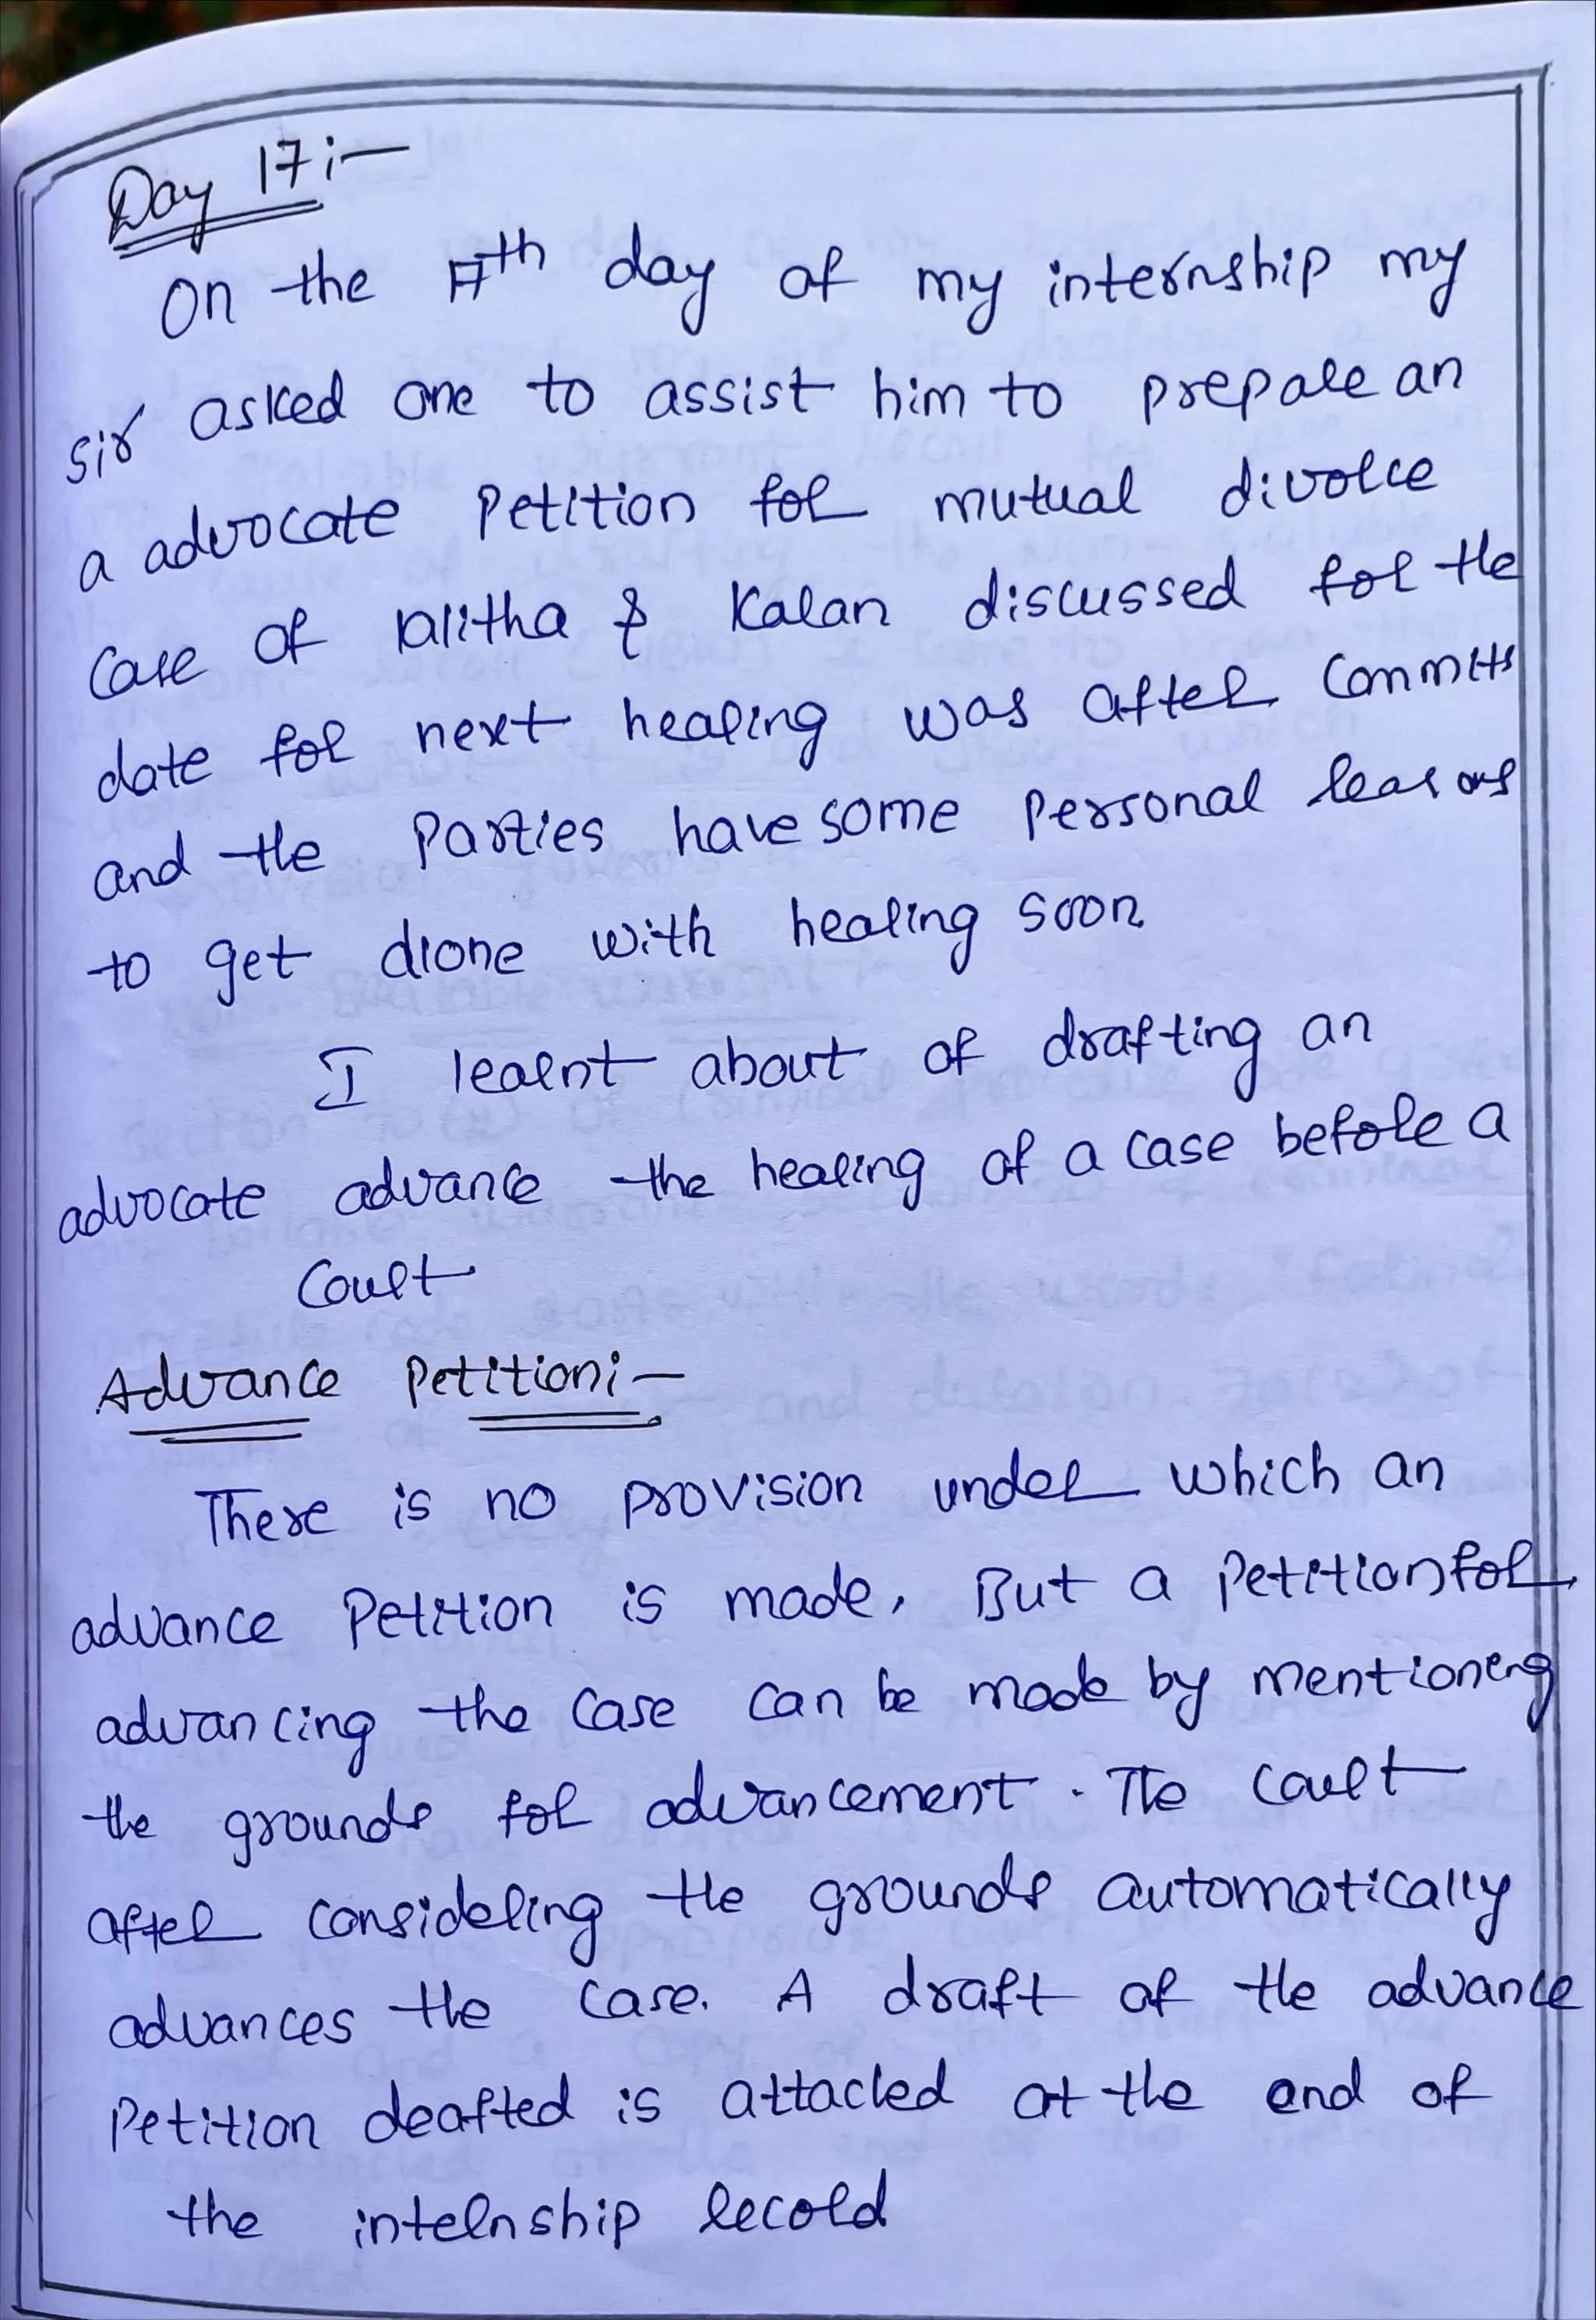 Day 17:-
On the 17th day of my internship my
sir asked one to assist him to prepare an
a advocate Petition for mutual divorce
case of & Kalan discussed for the
date for next hearing was after
and the Parties have some personal reasons
to get dione with hearing soon
I learnt about of drafting an
advocate advance the hearing of a case before a
Court
Advance Petition:-
There is no provision under which an
advance Petition is made. But a Petition for
advancing the case can be made by mentioneng
the grounds for advancement. The Court
after considering the grounds automatically
advances the case. A draft of the advance
Petition deafted is attacled at the end of
the internship record